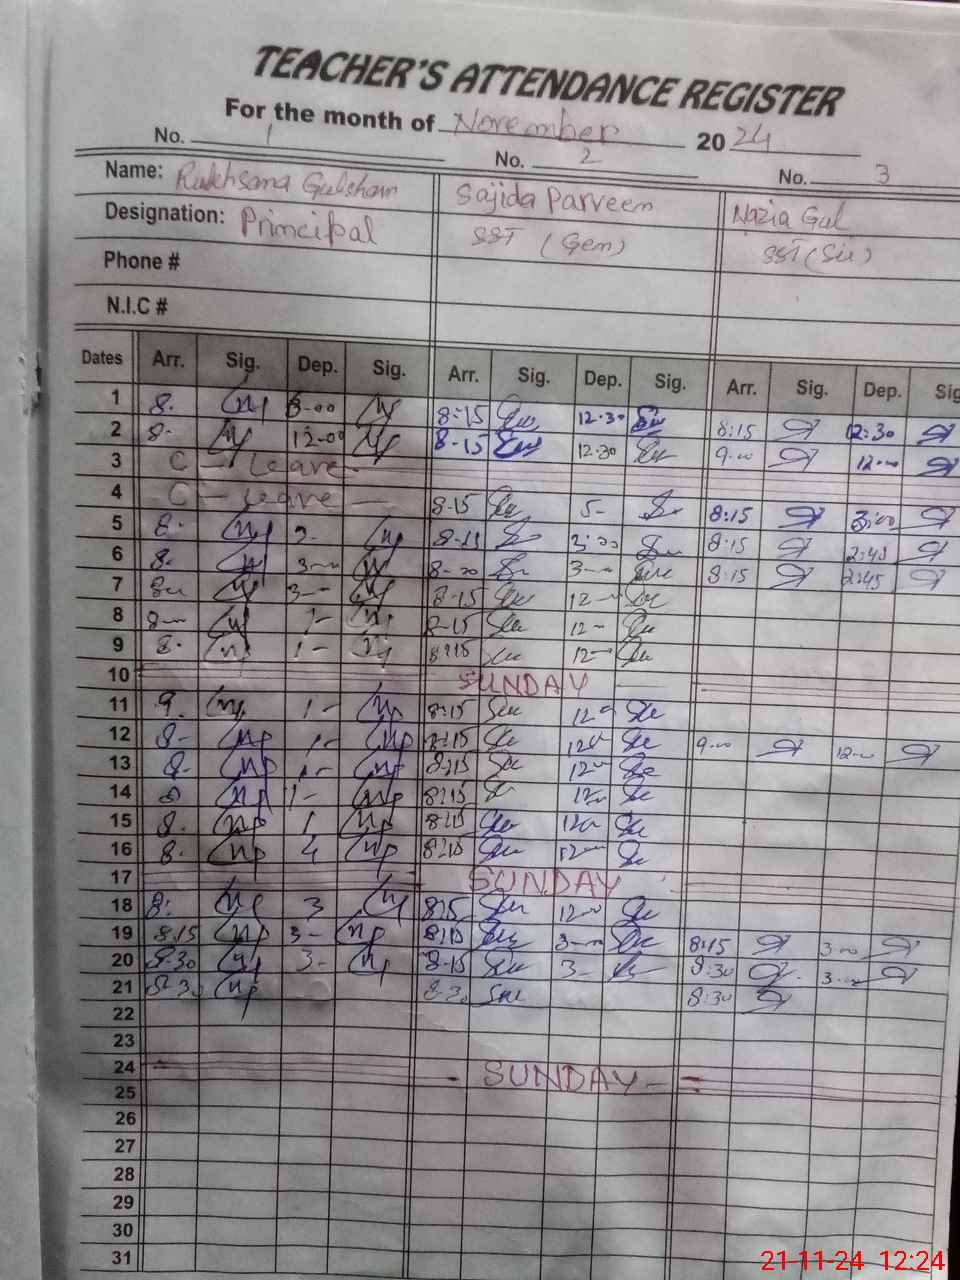 TEACHER'S ATTENDANCE REGISTER
For the month of November 2024
No. 1 No. 2 No. 3
Name: Rukhsana Gulshan Sajida Parveen Nazia Gul
Designation: Principal SST (Gen) SST (Sci)
Phone #
N.I.C #
Dates Arr. Sig. Dep. Sig. Arr. Sig. Dep. Sig. Arr. Sig. Dep. Sig
1 8. 3-00 8:15 12.30 8:15 12:30
2 8- 12-00 8-15 12.30 9-00 12-00
3 C - Leave -
4 C - Leave - 8-15 5- 8:15 3:00
5 8. 3- 3:00 8:15 2:45
6 8. 3- 8-00 3- 8:15 2:45
7 3- 8-15 12-
8 1- 8-15 12-
9 8. 1- 8:15 12-
10 SUNDAY
11 9. 1- 8:15 12
12 8- 1- 8:15 12 9-00 12-00
13 8- 1- 8:15 12
14 1- 8:15 12
15 8. 1 8:15 12
16 8. 4 8:15 12
17 SUNDAY
18 8. 3 8:15 12
19 8:15 3- 8:15 3- 8:15 3-00
20 8.30 3- 8-15 3- 8:30 3-00
21 8.30 8.30 8:30
22
23
24 SUNDAY
25
26
27
28
29
30
31
21-11-24 12:24